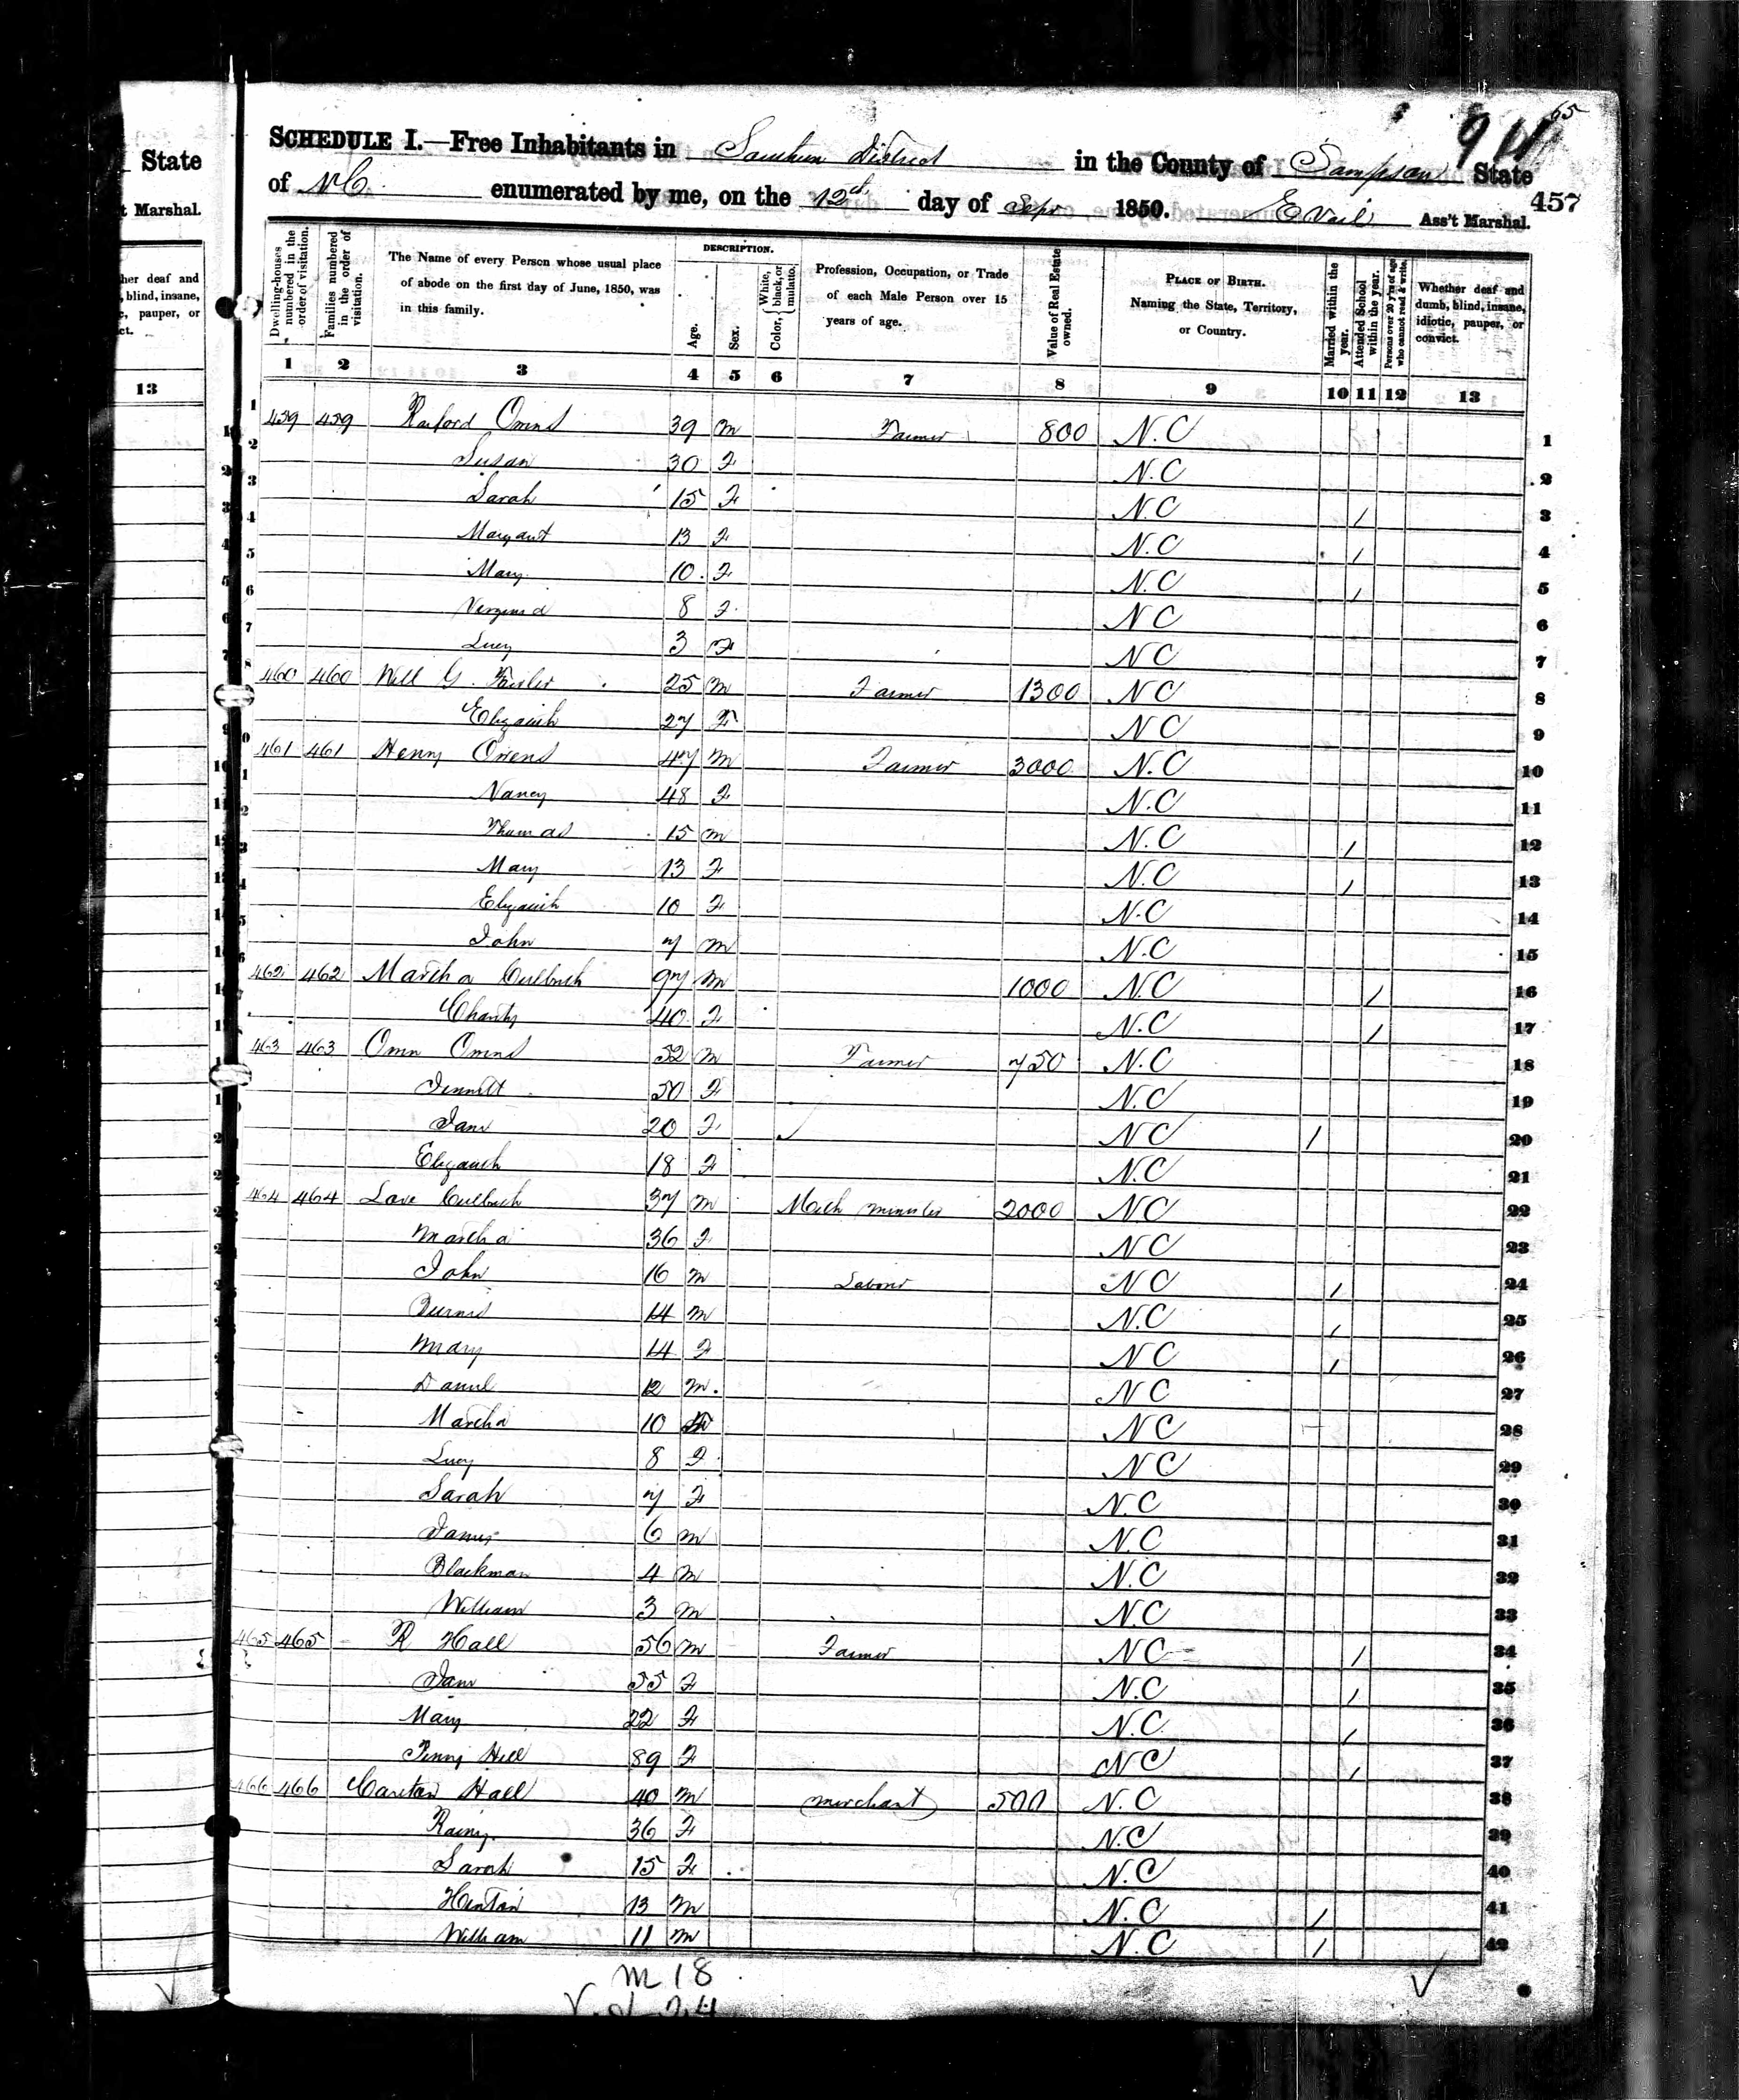 65
914
SCHEDULE I.—Free Inhabitants in Southern District in the County of Sampson State
of N.C. enumerated by me, on the 12th day of Sept 1850. E Vail Ass't Marshal.
457
State
t Marshal.
her deaf and
, blind, insane,
c, pauper, or
ct.
13
Dwelling-houses numbered in the order of visitation.
Families numbered in the order of visitation.
The Name of every Person whose usual place of abode on the first day of June, 1850, was in this family.
DESCRIPTION.
Age.
Sex.
Color, { White, black, or mulatto.
Profession, Occupation, or Trade of each Male Person over 15 years of age.
Value of Real Estate owned.
PLACE OF BIRTH.
Naming the State, Territory, or Country.
Married within the year.
Attended School within the year.
Persons over 20 y'rs of age who cannot read & write.
Whether deaf and dumb, blind, insane, idiotic, pauper, or convict.
1 2 3 4 5 6 7 8 9 10 11 12 13
1 459 459 Raiford Owens 39 m Farmer 800 N.C 1
2 Susan 30 F N.C 2
3 Sarah 15 F N.C / 3
4 Margaret 13 F N.C / 4
5 Mary 10 F N.C / 5
6 Virginia 8 F N C 6
7 Lucy 3 F N C 7
8 460 460 Will G. 25 m Farmer 1300 N C 8
9 Elizabeth 27 F N C 9
461 461 Henry Owens 47 m Farmer 3000 N.C 10
Nancy 48 F N.C 11
Thomas 15 m N.C / 12
Mary 13 F N.C / 13
Elizabeth 10 F N.C 14
John 7 m N.C 15
462 462 Martha Culbreth 97 m 1000 N.C / 16
Charity 40 F N.C / 17
463 463 Owen Owens 52 m Farmer 750 N.C 18
Jennett 50 F N.C 19
Jane 20 F N C / 20
Elizabeth 18 F N.C 21
464 464 Love Culbreth 37 m Meth minister 2000 N C 22
Martha 36 F N C 23
John 16 m Laborer N C / 24
14 m N.C / 25
Mary 14 F N C / 26
Daniel 12 m. N C 27
Martha 10 F N C 28
Lucy 8 F N C 29
Sarah 7 F N.C 30
James 6 m N.C 31
Blackman 4 m N.C 32
William 3 m N.C 33
465 465 R Hall 56 m Farmer N C / 34
Jane 55 F N.C / 35
Mary 22 F N.C. / 36
Penny Hall 89 F N C / 37
466 466 Carlton Hall 40 m merchant 500 N.C 38
Rainy 36 F N.C 39
Sarah 15 F N.C 40
Hinton 13 m N.C / 41
William 11 m N.C / 42
m 18